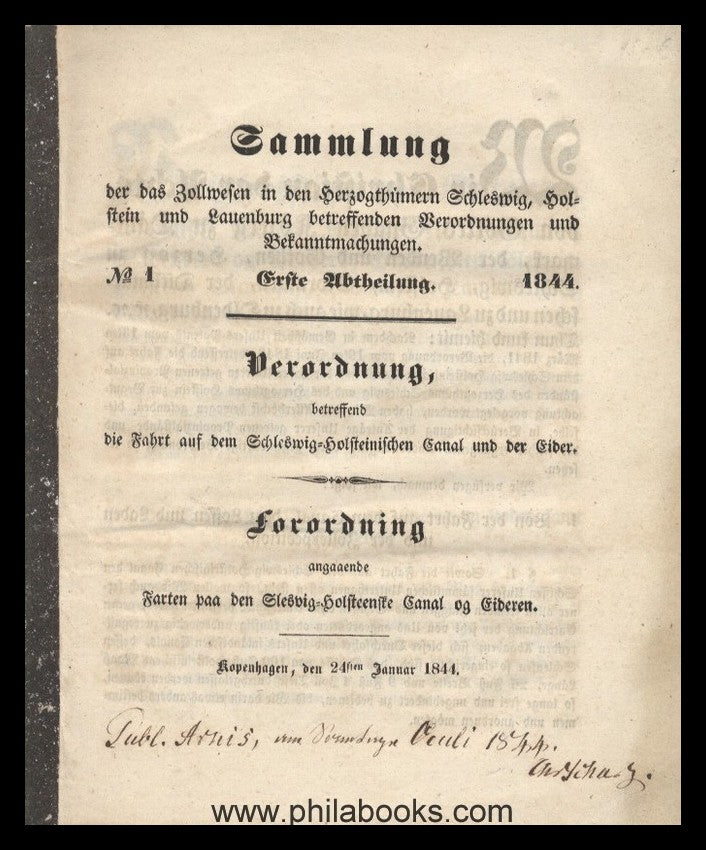 Sammlung
der das Zollwesen in den Herzogthümern Schleswig, Hol-
stein und Lauenburg betreffenden Verordnungen und
Bekanntmachungen.
№ 1 Erste Abtheilung. 1844.
Verordnung,
betreffend
die Fahrt auf dem Schleswig-Holsteinischen Canal und der Eider.
Forordning
angaaende
Farten paa den Slesvig-Holsteenske Canal og Eideren.
Kopenhagen, den 24sten Januar 1844.
Publ. Arnis, am Sonntage Oculi 1844.
www.philabooks.com